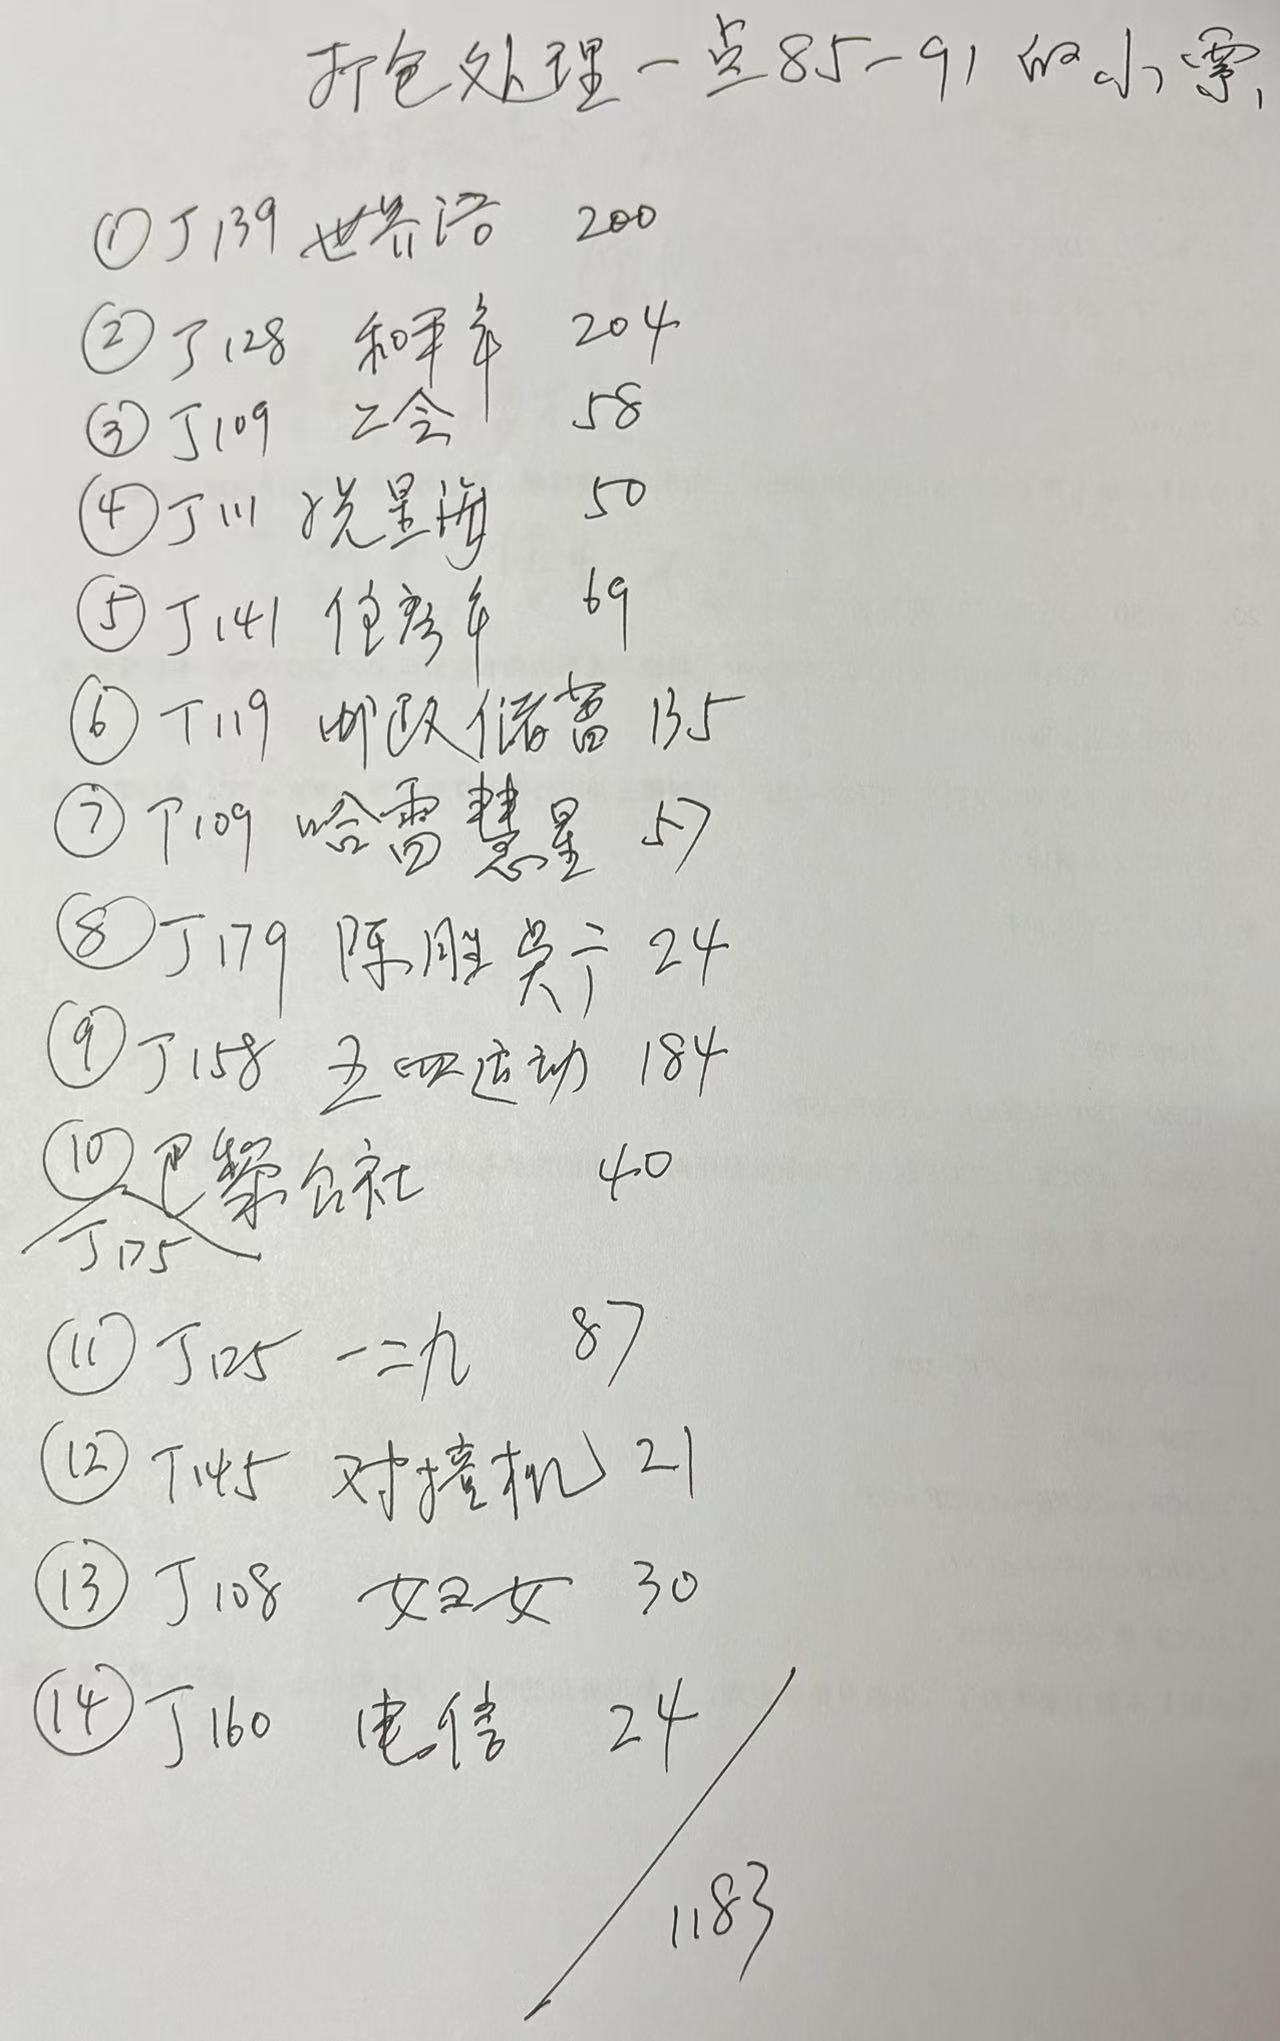 打包处理一点85-91的小票
① J139 世界语 200
② J128 和平年 204
③ J109 二会 58
④ J111 冼星海 50
⑤ J141 住房年 69
⑥ T119 邮政储蓄 135
⑦ T109 哈雷慧星 57
⑧ J179 陈胜吴广 24
⑨ J158 五四运动 184
⑩ 巴黎公社 40
J175
⑪ J125 一二九 87
⑫ T145 对撞机 21
⑬ J108 妇女 30
⑭ J160 电信 24
1183